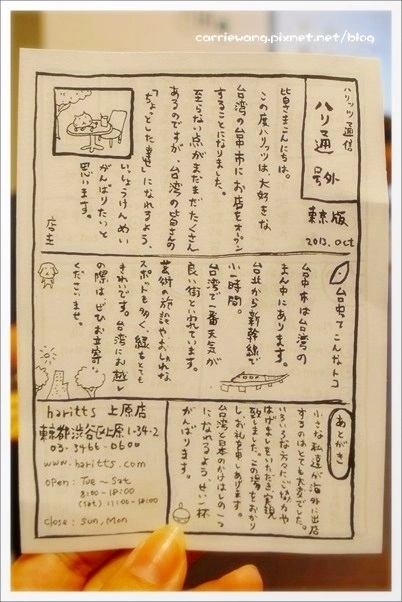 carriewang.pixnet.net/blog
ハリッツ通信
ハリマ通
号外
東京版
2013. Oct
皆さまこんにちは。
この度ハリッツは、大好きな
台湾の台中市にお店をオープン
することになりました。
至らない点がまだまだたくさん
あるのですが、台湾の皆さんの
「ちょっとした幸せ」になれるよう、
いっしょうけんめい
がんばりたいと
思います。
店主
台中ってこんなトコ
台中市は台湾の
まん中にあります。
台北から新幹線で
小一時間。
台湾で一番天気が
良い街といわれています。
芸術の施設やおしゃれな
スポットも多く、緑もとても
きれいです。台湾にお越し
の際はぜひお立寄
くださいませ。
あとがき
小さな私達が海外に出店
するのはとても大変でした。
いろいろな方々にご協力や
はげましをいただき、実現
致しました。この場をおかり
し、お礼を申しあげます。
台湾と日本のかけはしの一つ
になれるようせい一杯
がんばります。
haritts 上原店
東京都渋谷区上原1-34-2
03-3466-0600
www.haritts.com
open: Tue ~ Sat
8:00-18:00
(Sat) 11:00-18:00
close: Sun, Mon